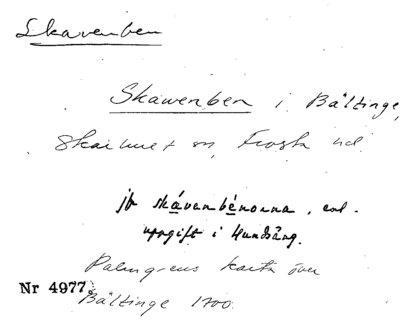 Skavenben
Skawenben i Bältinge,
Skarhult sn, Frosta hd.
jfr skávanbénorna, enl.
uppgift i Hundsäng.
Palmgrens karta över
Bältinge 1700.
Nr 4977